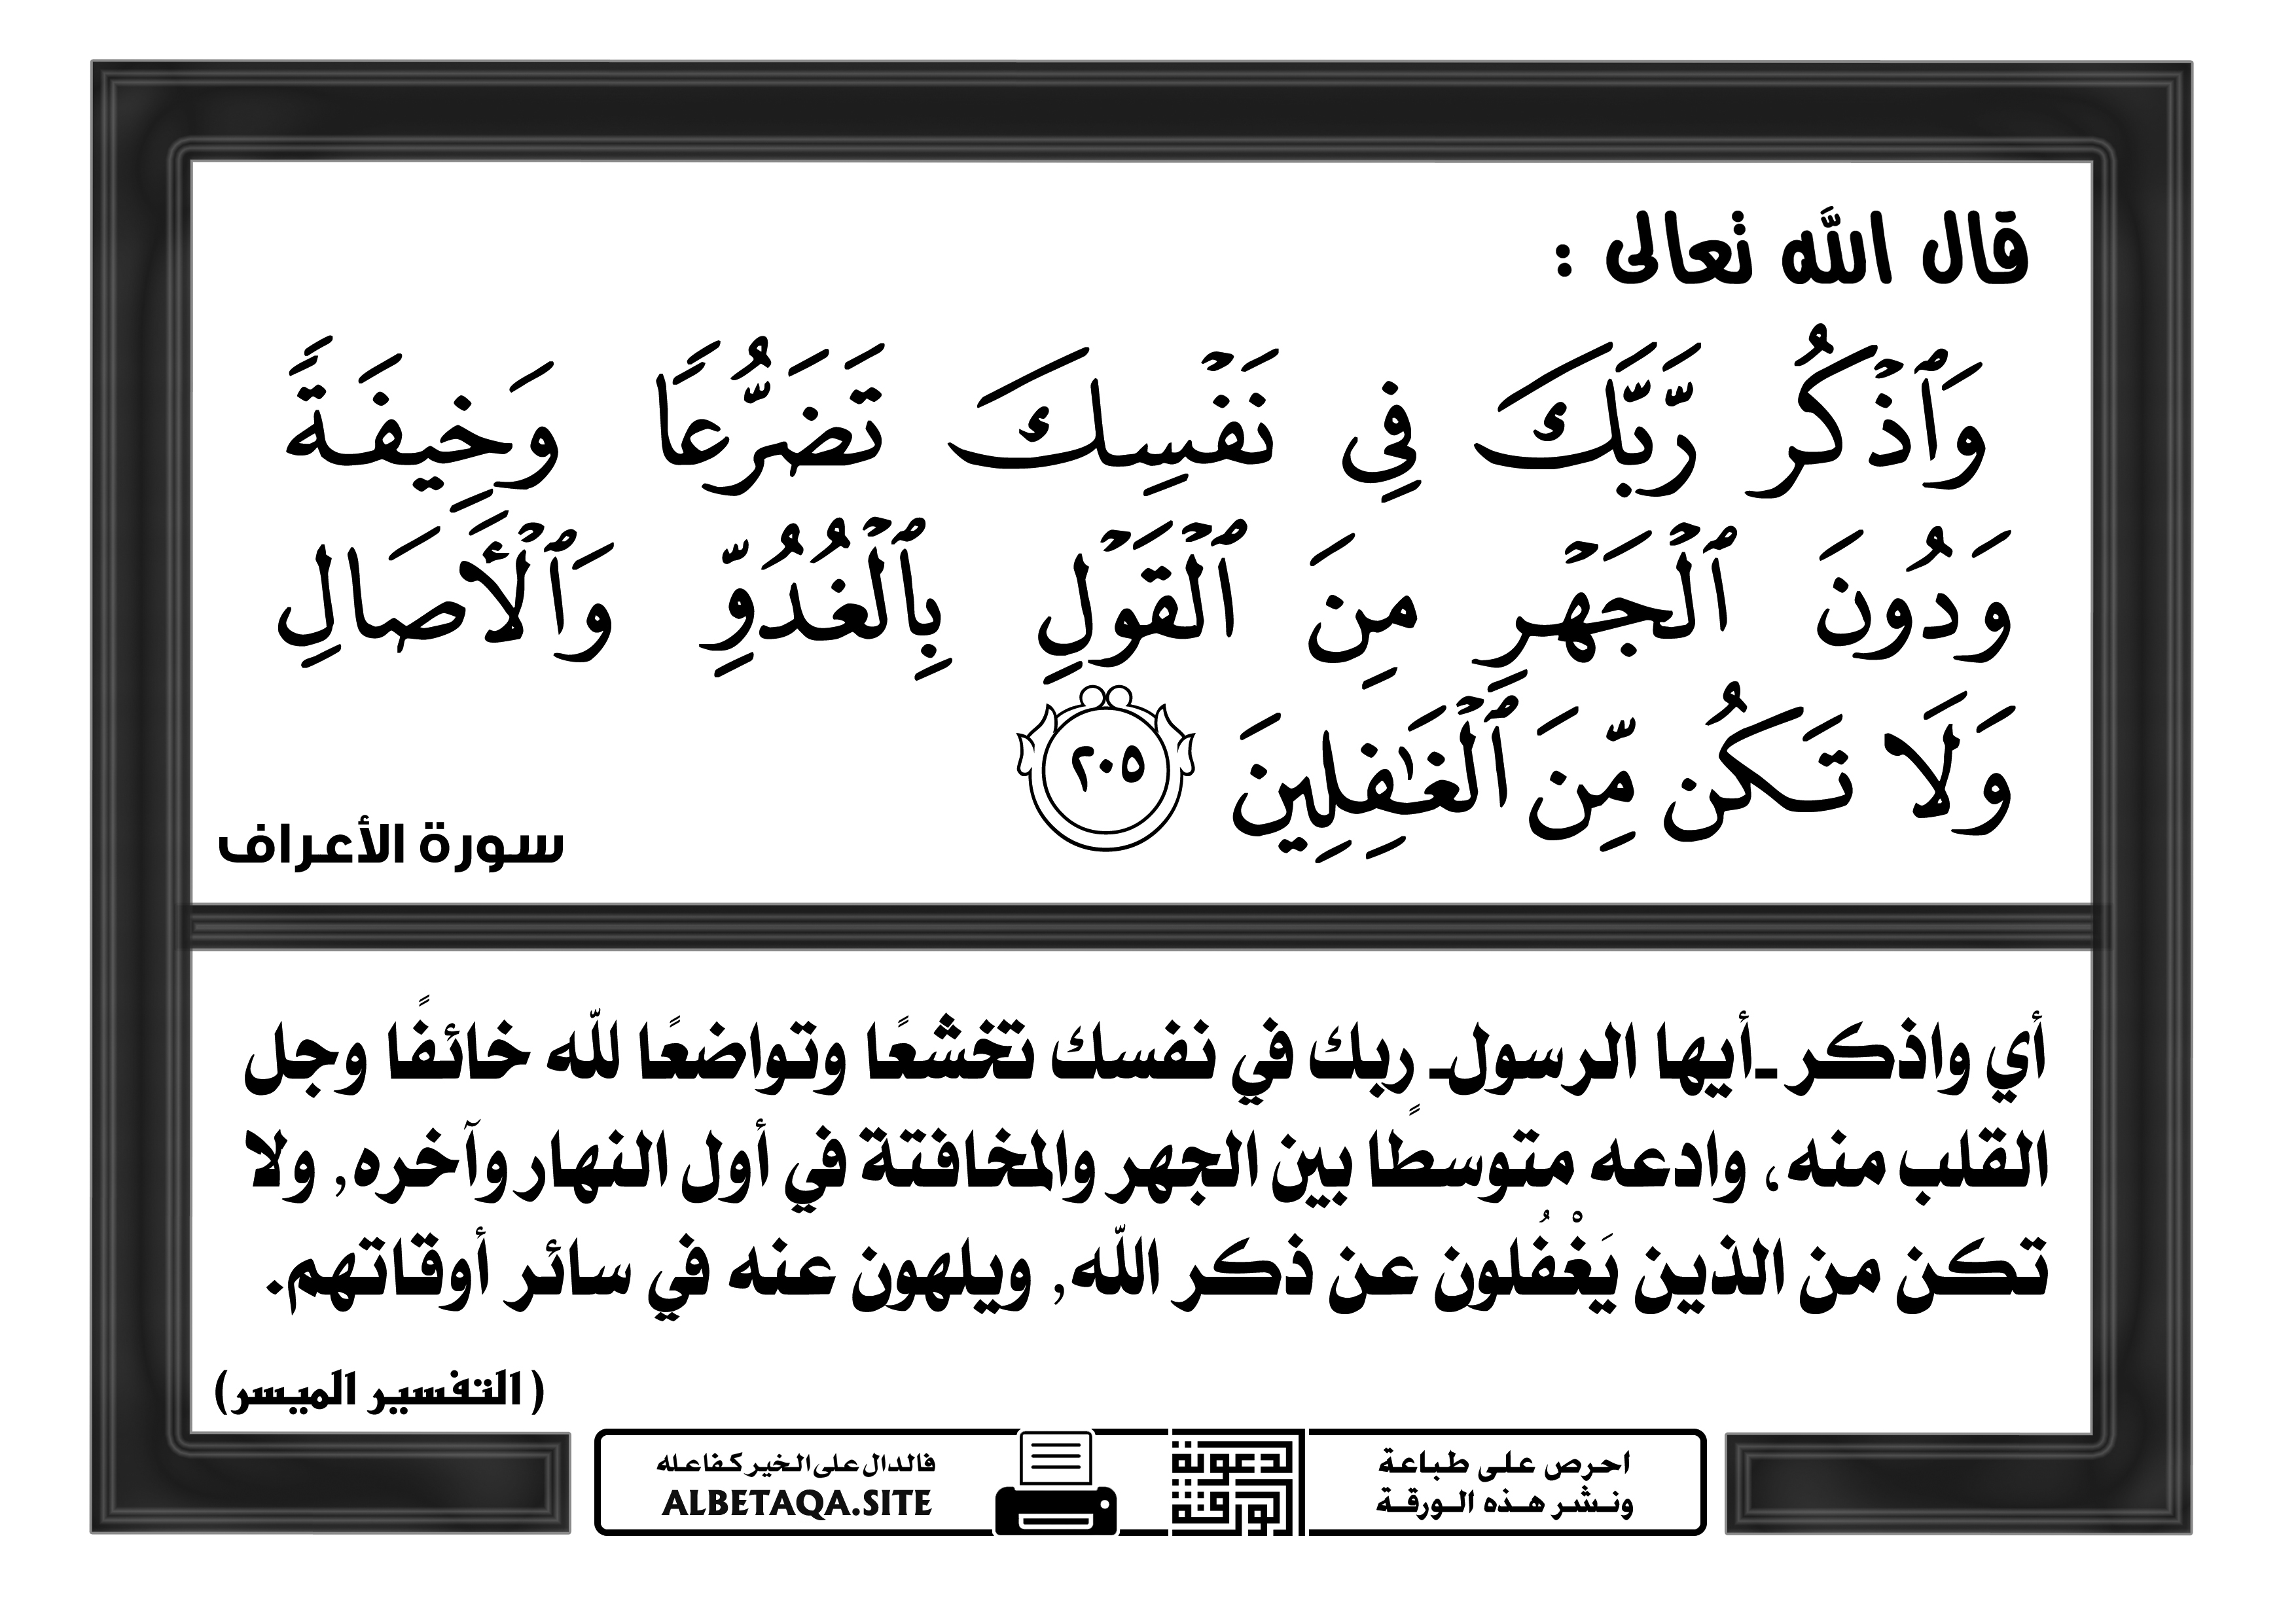 قال الله تعالى :
وَٱذْكُر رَّبَّكَ فِى نَفْسِكَ تَضَرُّعًا وَخِيفَةً
وَدُونَ ٱلْجَهْرِ مِنَ ٱلْقَوْلِ بِٱلْغُدُوِّ وَٱلْأَصَالِ
وَلَا تَكُن مِّنَ ٱلْغَٰفِلِينَ ٢٠٥
سورة الأعراف
أي واذكر ـأيها الرسولـ ربك في نفسك تخشعًا وتواضعًا لله خائفًا وجل
القلب منه، وادعه متوسطًا بين الجهر والمخافتة في أول النهار وآخره, ولا
تكن من الذين يَغْفُلون عن ذكر الله, ويلهون عنه في سائر أوقاتهم.
( التفسير الميسر)
احرص على طباعة
ونشر هذه الورقة
الدعوية
الورقة
فالدال على الخير كفاعله
ALBETAQA.SITE